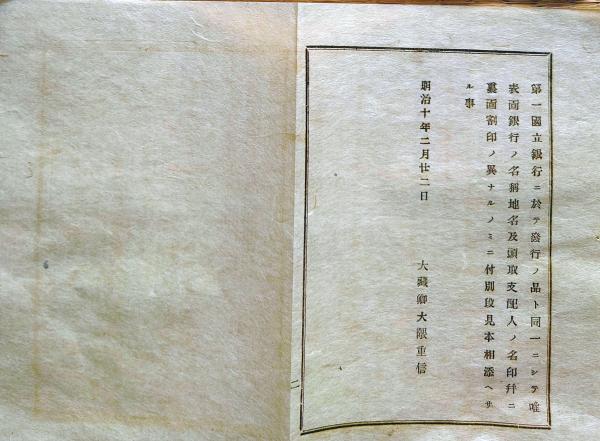 第一國立銀行ニ於テ發行ノ品ト同一ニシテ唯
表面銀行ノ名稱地名及頭取支配人ノ名印幷ニ
裏面割印ノ異ナルノミニ付別段見本相添ヘサ
ル事
明治十年二月廿二日
大藏卿大隈重信
二